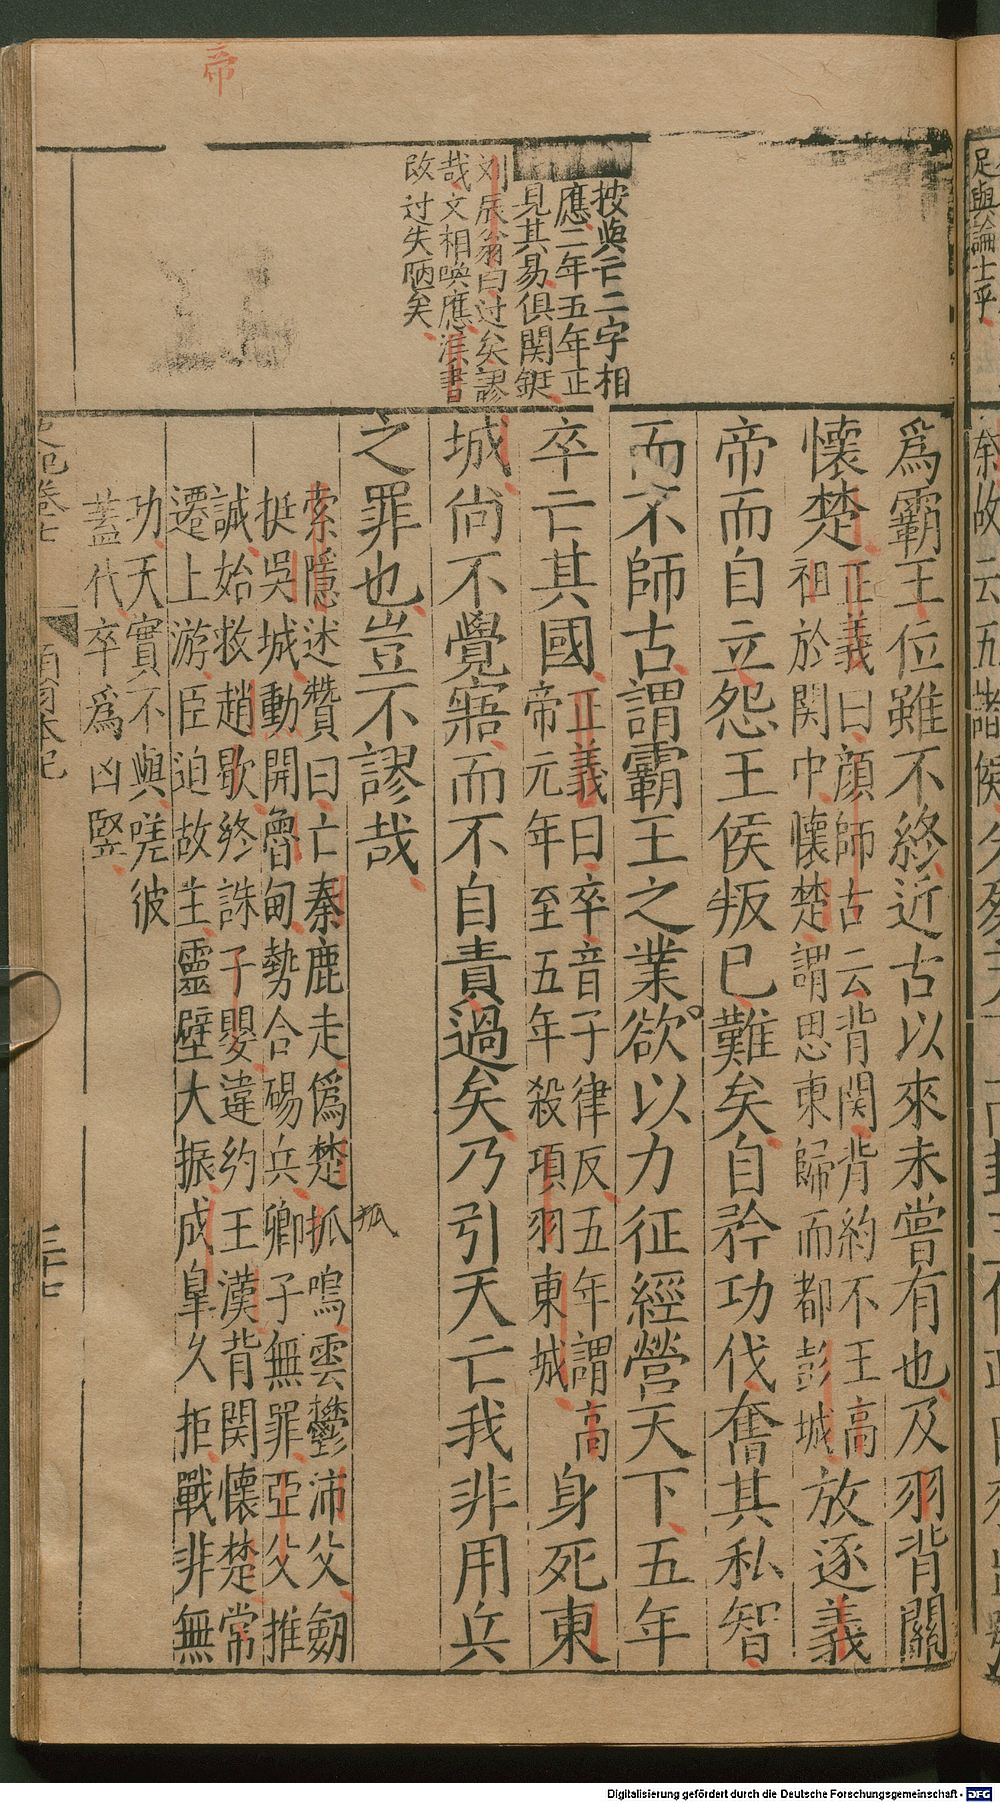 帝
按與亡二字相
應二年五年正
見其易俱関鋌
刘辰翁曰过矣謬
哉文相喚應漢書
改过失陋矣
為霸王位雖不終近古以來未嘗有也及羽背關
懷楚
正義曰顔師古云背関背約不王高
祖於関中懷楚謂思東歸而都彭城
放逐義
帝而自立怨王侯叛已難矣自矜功伐奮其私智
而不師古謂霸王之業欲以力征經營天下五年
卒亡其國
正義曰卒音子律反五年謂高
帝元年至五年殺項羽東城
身死東
城尚不覺寤而不自責過矣乃引天亡我非用兵
之罪也豈不謬哉
狐
索隱述贊曰亡秦鹿走偽楚狐鳴雲鬱沛父劔
挺吳城動開魯甸勢合碭兵卿子無罪亞父推
誠始救趙歇終誅子嬰違約王漢背関懷楚常
遷上游臣迫故主靈壁大振成皐久拒戰非無
功天實不與嗟彼
蓋代卒為凶竪
史記卷七
項羽本紀
三十七
足與論士乎
Digitalisierung gefördert durch die Deutsche Forschungsgemeinschaft - DFG